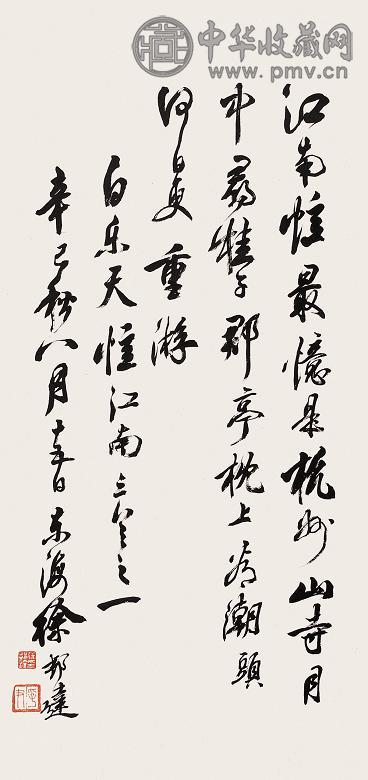 中华收藏网
www.pmv.cn
江南憶最憶是杭州山寺月
中尋桂子郡亭枕上看潮頭
何日更重游
白乐天憶江南三之一
辛巳秋八月十五日东海徐邦達